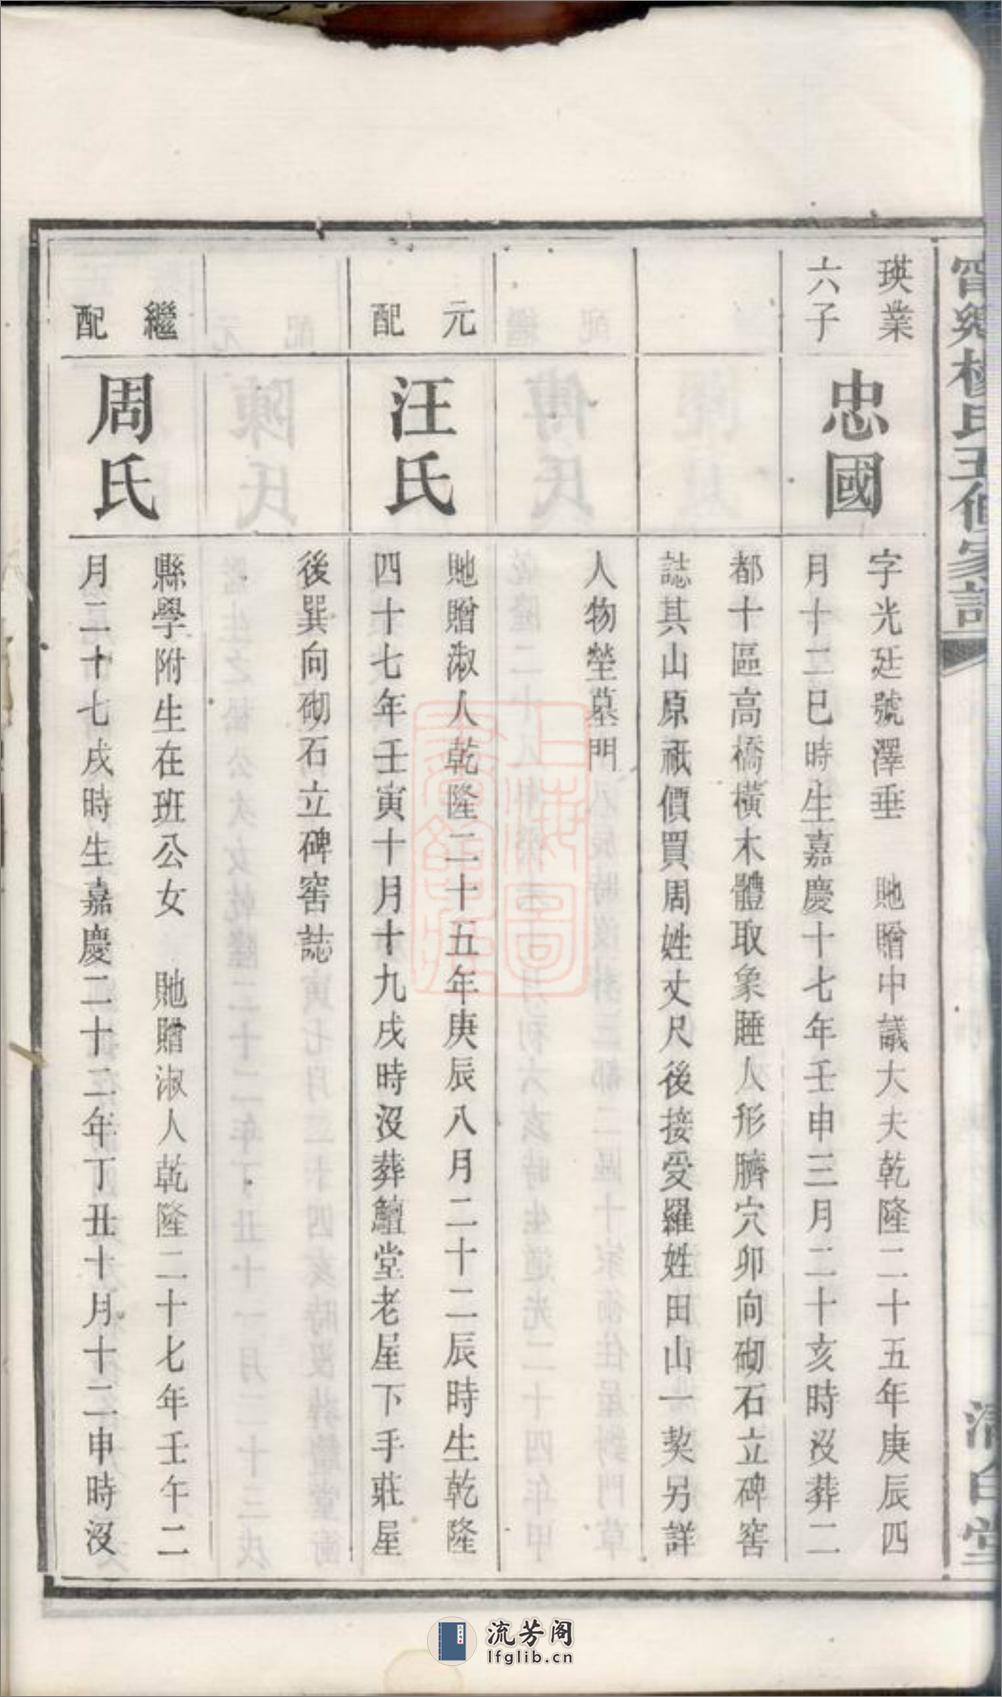 甯鄉楊氏五修家譜
清白堂
瑛業
六子
忠國
字光廷號澤垂 貤贈中議大夫乾隆二十五年庚辰四
月十二巳時生嘉慶十七年壬申三月二十亥時沒葬二
都十區高橋橫木體取象睡人形臍穴卯向砌石立碑窖
誌其山原祇價買周姓丈尺後接受羅姓田山一契另詳
人物塋墓門
元
配
汪氏
貤贈淑人乾隆二十五年庚辰八月二十二辰時生乾隆
四十七年壬寅十月十九戌時沒葬鱣堂老屋下手莊屋
後巽向砌石立碑窖誌
繼
配
周氏
縣學附生在班公女 貤贈淑人乾隆二十七年壬午二
月二十七戌時生嘉慶二十二年丁丑十月十二申時沒
上海圖
書館藏
流芳阁
lfglib.cn